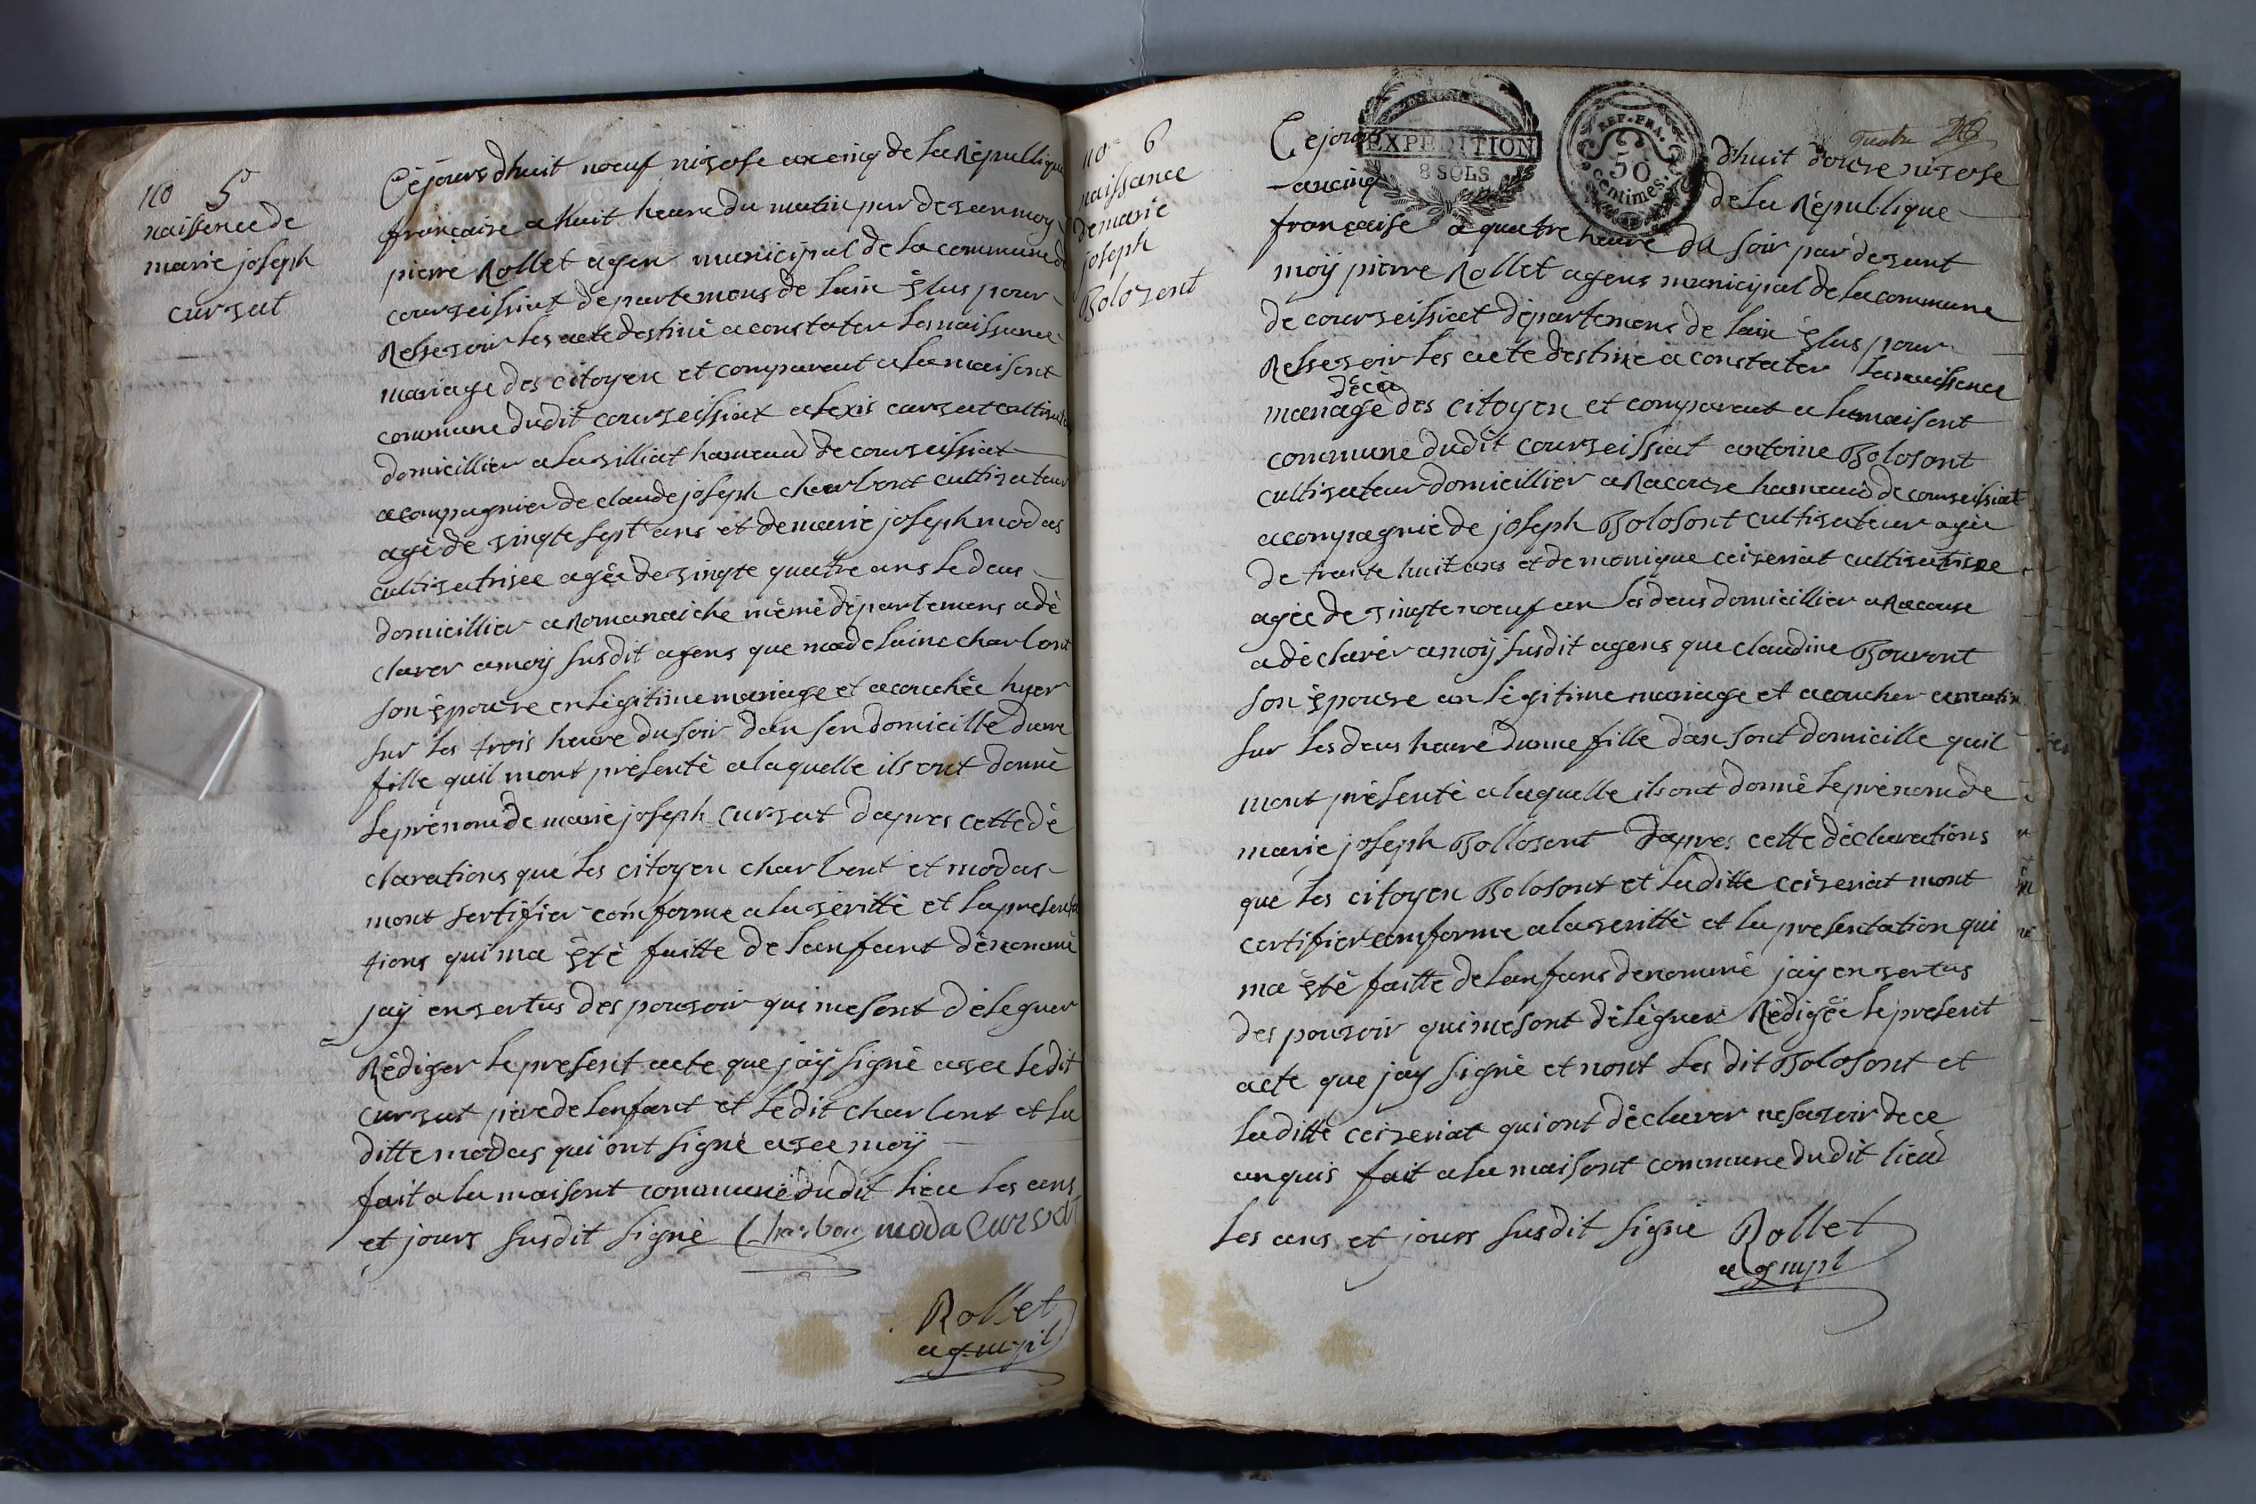 no 5
naissence de
marie joseph
curvat
Cejours dhuit noeuf nivose an cinq de la Républiqu
française a huit heure du matin par devan moy
pierre Rollet agen municipal de la commune de
courveissiat departemens de lain élus pour
Relsevoir les acte destiné a constater les naissance
mariage des citoyen et comparent a la maisont
commune dudit courveissiat alexis curvat cultivat
domicillier a lavilliat hameaud de courveissiat
acompagnier de claude joseph charbont cultivateur
agè de vingte sept ans et de marie joseph modas
cultivatrisee agée de vingte quatre ans le deus
domicillier a Romanaiche même département a dé
clarer a moÿ susdit agens que madelaine charbont
son épouse en légitime mariage et acouchée hyer
sur les trois heure du soir dan son domicille dunne
fille quil mont présenté a laquelle ils ont donné
le prénom de marie joseph curvat dapres cette dé
clarations que les citoyen charbont et modas
mont sertifier comforme a la véritté et la presenta
tions qui ma été faitte de lanfant dénommé
jaÿ en vertus des pouvoir qui me sont déleguer
Rédiger le present acte que jaÿ signé avec ledit
curvat pere de lenfant et ledit charbont et la
ditte modas qui ont signé avec moÿ
fait a la maisont commune dudit lieu les ans
et jours susdit signé Charbon moda Curvat
Rollet
ag. mpil
no 6
naissance
de marie
joseph
Bolozont
Cejours
EXPEDITION
8 SOLS
REP. FRA.
50
centimes
quatre
dhuit douze nivose
an cinq
de la République
française a quatre heure du soir par devant
moÿ pierre Rollet agens municipal de la commune
de courveissiat départemens de lain élus pour
Relsevoir les acte destine a constater la naissence
décè
mariage des citoyen et comparent a la maisont
commune dudit courveissiat antoine Bolosont
cultivateur domicillier a Racouse hameaud de courveissiat
acompagnié de joseph Bolosont cultivateur agée
de trante huit ans et de monique ceiseriat cultivatrise
agée de vingte noeuf an les deus domicillier a Racouse
a déclarér a moÿ susdit agens que claudine Bouvont
son épouse an légitime mariage et acoucher ce matin
sur les deus heure dunne fille dan sont domicille quil
mont présenté a laquelle ils ont donné le prénom de
marie joseph Bollosont dapres cette déclarations
que les citoyen Bolosont et laditte ceiseriat mont
certifier comforme a la veritté et la presentation qui
ma été faitte de lanfans denommé jaÿ en vertus
des pouvoir qui me sont déléguer Rédigée le present
acte que jay signé et nont les dit Bolosont et
la ditte ceiseriat qui ont déclarer ne savoir de ce
anquis fait a la maisont commune dudit lieu
les ans et jours susdit signé Rollet
ag mpl